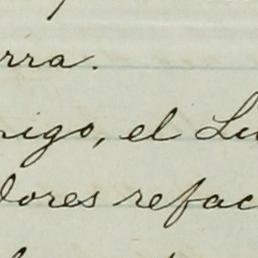 rra.
nigo, el Lu
dores refac